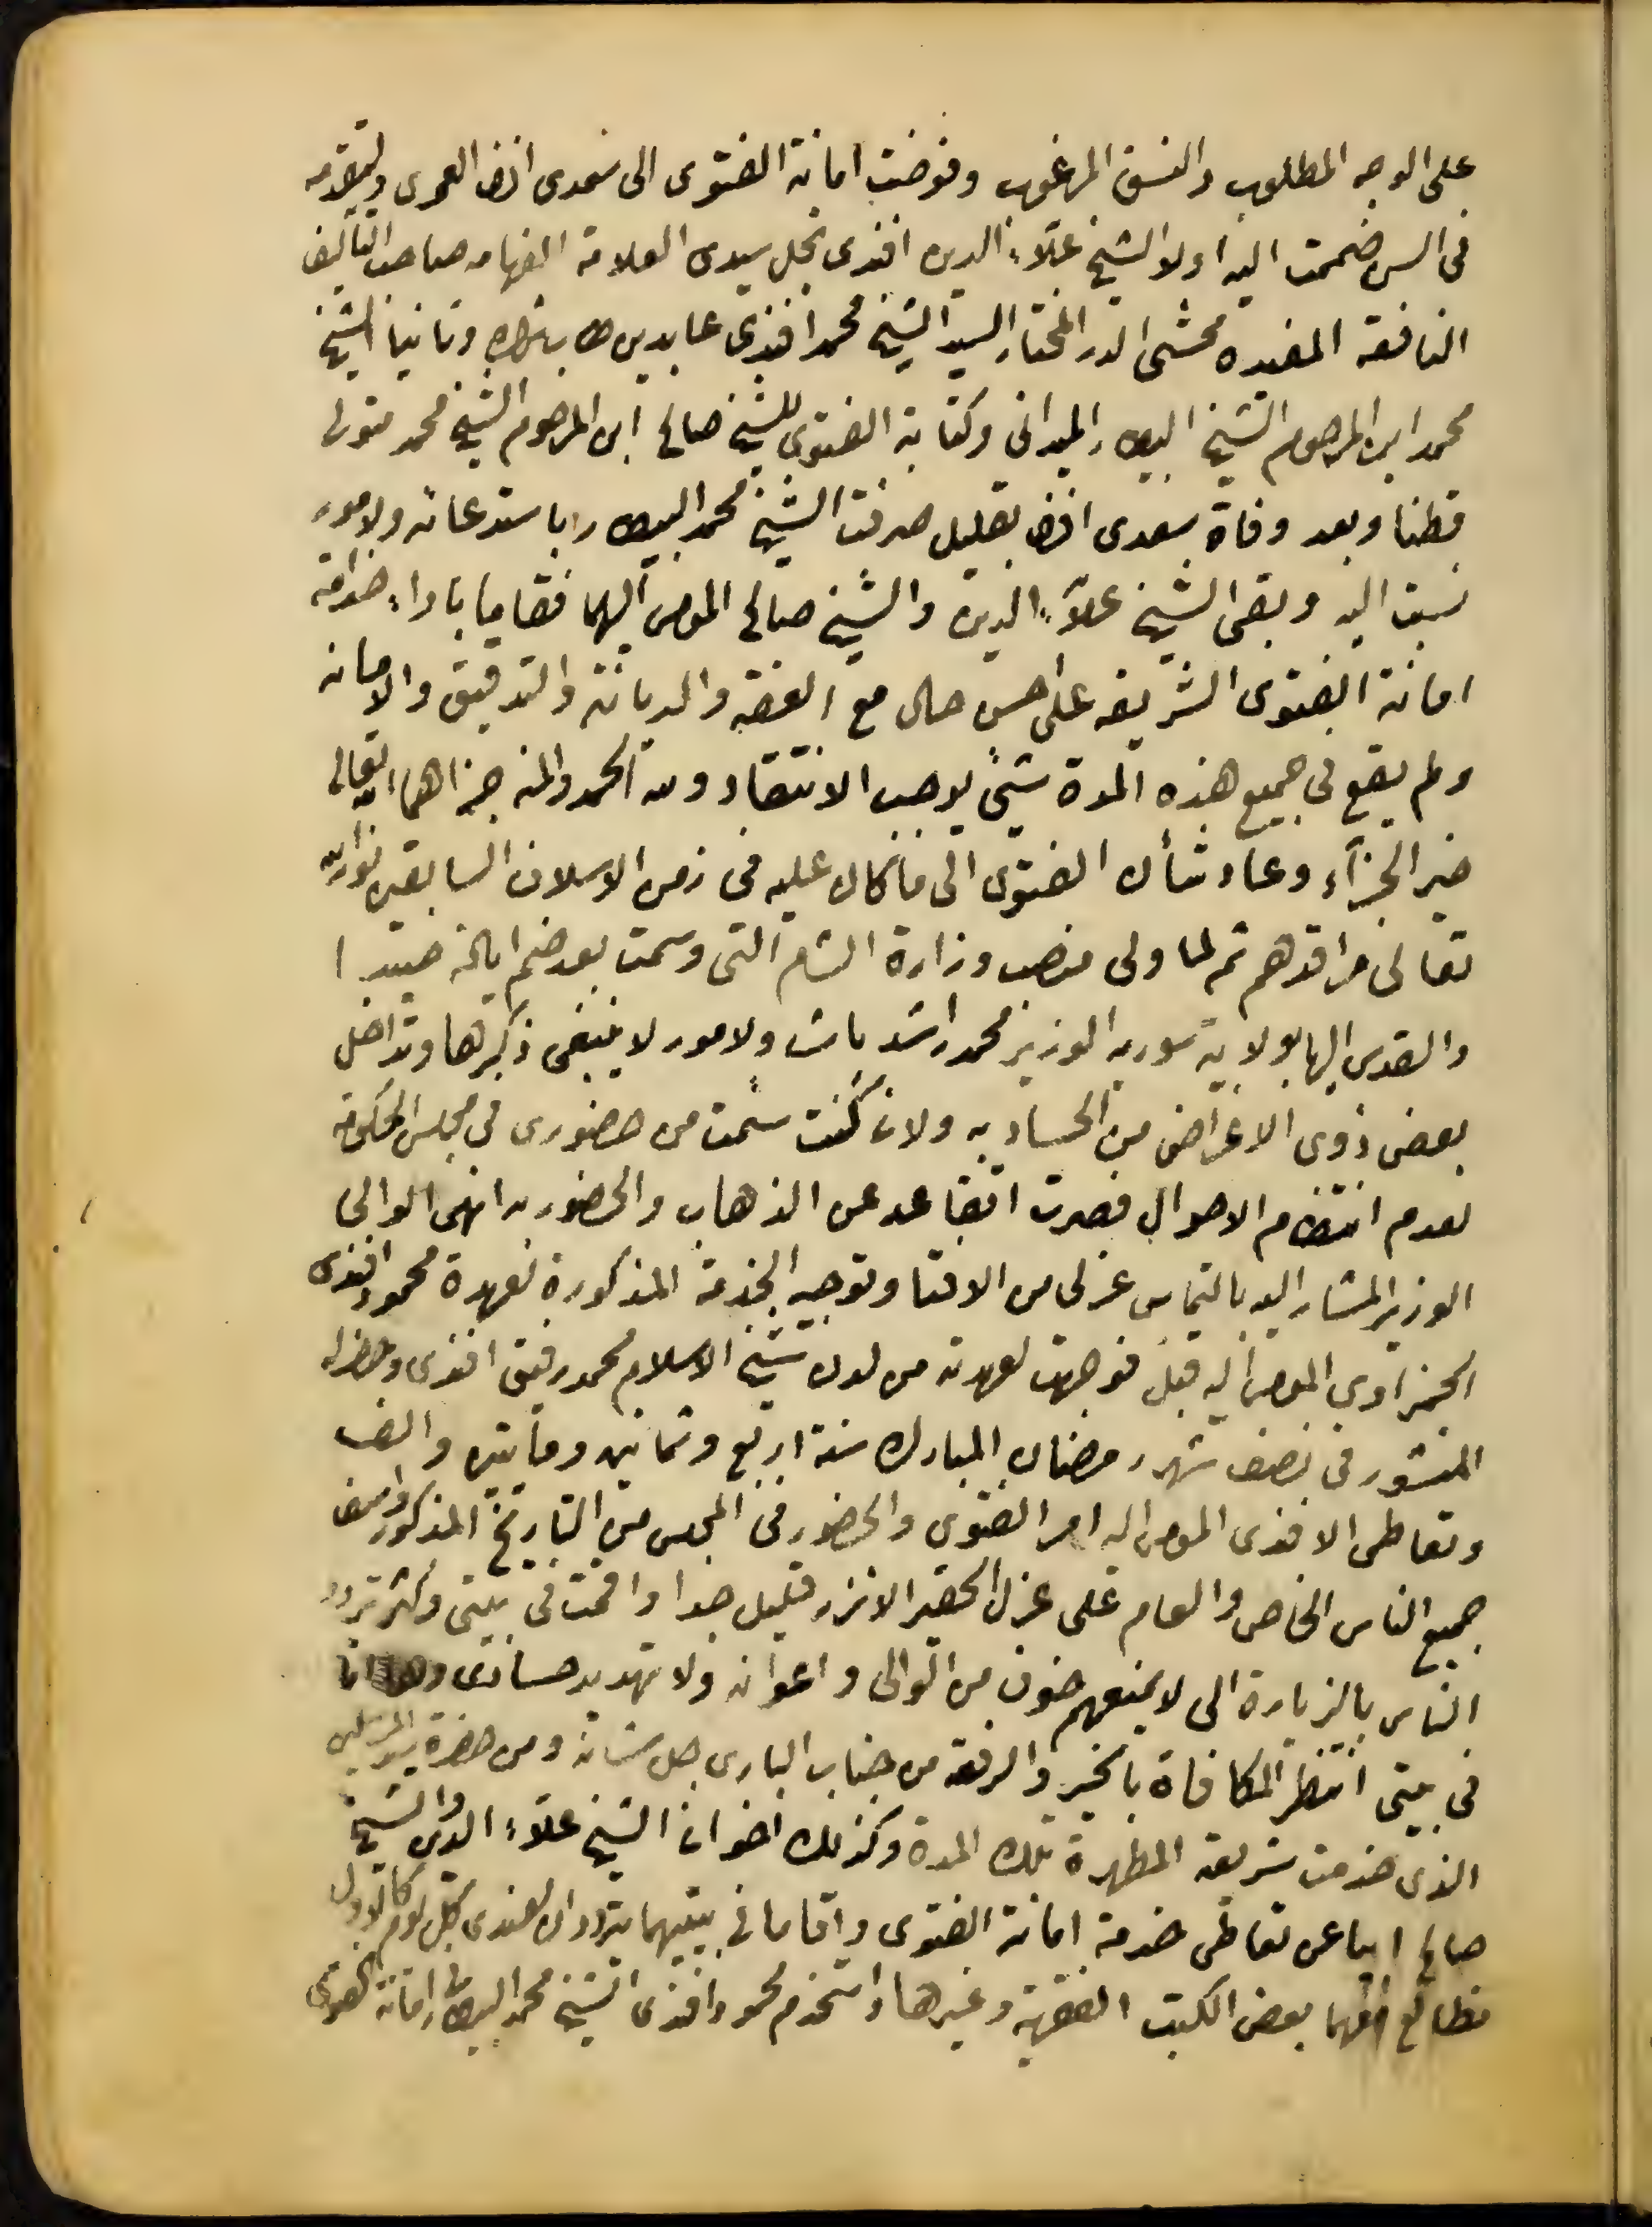 على الوجه المطلوب والنسق المرغوب وفوضت امانة الفتوى الى سعدى افندى العمرى ولتقدمه
فى السن ضممت اليه اولا الشيخ علاء الدين افندى نجل سيدى العلامة الفهامه صاحب التآليف
النافعه المفيده محشى الدر المختار السيد الشيخ محمد افندى عابدين طاب ثراه وثانيا الشيخ
محمد ابن المرحوم الشيخ البيطار الميدانى وكتابة الفتوى للشيخ صالح ابن المرحوم الشيخ محمد متولى
قطنا وبعد وفاة سعدى افندى بقليل صرفت الشيخ محمد البيطار باستدعائه ولامور
نسبت اليه وبقى الشيخ علاء الدين والشيخ صالح المومى اليهما فقاما باداء خدامة
امانة الفتوى الشريفه على احسن حال مع العفة والديانة والتدقيق والامانه
ولم يقع فى جميع هذه المدة شئ يوجب الانتقاد ولله الحمد والمنه جزاهما الله تعالى
خير الجزآء وعاد شأن الفتوى الى ما كان عليه فى زمن الاسلاف السابقين نور الله
تعالى مراقدهم ثم لما ولى منصب وزارة الشام التى وسمت بعد ضم ايالة صيدا
والقدس اليها بولاية سوريه الوزير محمد راشد باشا ولامور لا ينبغى ذكرها وتداخل
بعض ذوى الاغراض من الحساد به ولانى كنت سئمت من حضورى فى مجلس الحكومه
لعدم انتظام الاحوال فصرت اتقاعد عن الذهاب والحضور به انهى الوالى
الوزير المشار اليه بالتماس عزلى من الافتا وتوجيه الخدمة المذكورة لعهدة محمود افندى
الحمزاوى المومى اليه قبل فوجهت لعهدته من لدن شيخ الاسلام محمد رفيق افندى وحضر له
المنشور فى نصف شهر رمضان المبارك سنة اربع وثمانين ومايتين والف
وتعاطى الافندى المومى اليه امر الفتوى والحضور فى المجلس من التاريخ المذكور واسف
جميع الناس الخاص والعام على عزل الحقير الا نزر قليل جدا واقمت فى بيتى وكثر تردد
الناس بالزيارة الى لا يمنعهم خوف من الوالى واعوانه ولا تهديد حسادى وها انا
فى بيتى انتظر المكافاة بالخير والرفعة من جناب البارى جل شانه ومن حضرة سيد المرسلين
الذى خدمت شريعته المطهرة تلك المدة وكذلك اخوانا الشيخ علاء الدين والشيخ
صالح ابيا عن تعاطى خدمة امانة الفتوى واقاما فى بيتيهما يترددان لعندى كل يوم كالاول
نطالع فيهما بعض الكتب الفقهية وغيرها واستخدم محمود افندى الشيخ محمد البيطار بامانة الفتوى